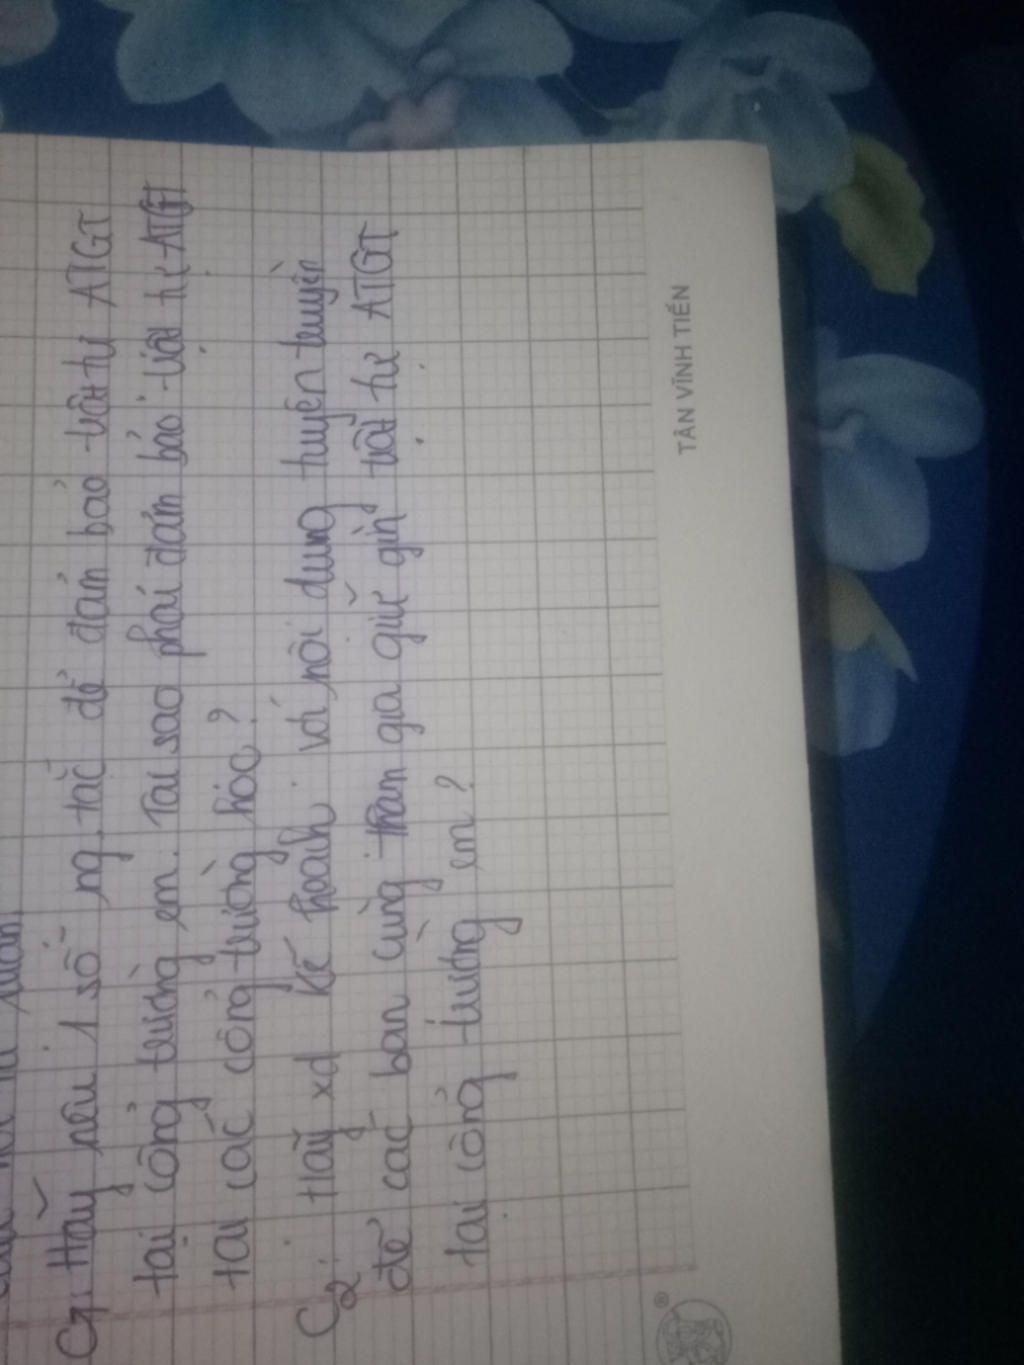 C1. Hãy nêu 1 số ng tắc để đảm bảo trật tự ATGT
tại cổng trường em. Tại sao phải đảm bảo trật tự ATGT
tại các cổng trường học?
C2. Hãy xd kế hoạch với nội dung tuyên truyền
để các bạn cùng tham gia giữ gìn trật tự ATGT
tại cổng trường em?
TÂN VĨNH TIẾN
®